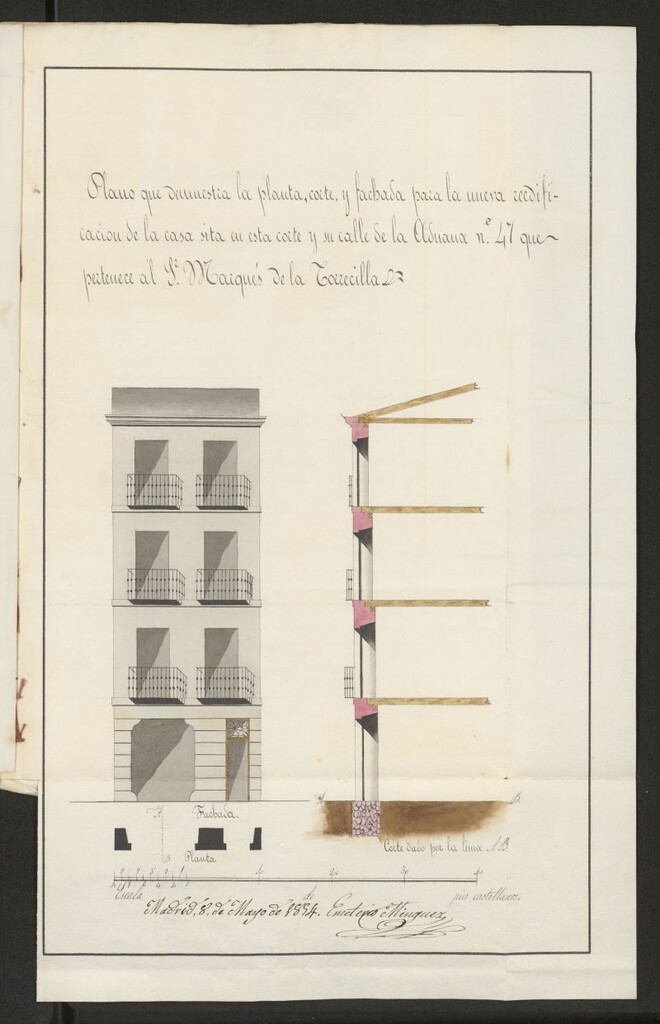 Plano que demuestra la planta, corte, y fachada para la nueva reedifi-
cacion de la casa sita en esta corte y su calle de la Aduana n.º 47 que
pertenece al S.r Marqués de la Torrecilla
Fachada.
A
B
Planta
A
B
Corte dado por la linea AB
Escala
de
pies castellanos.
Madrid, 8, de Mayo de 1854. Emeterio Minguez